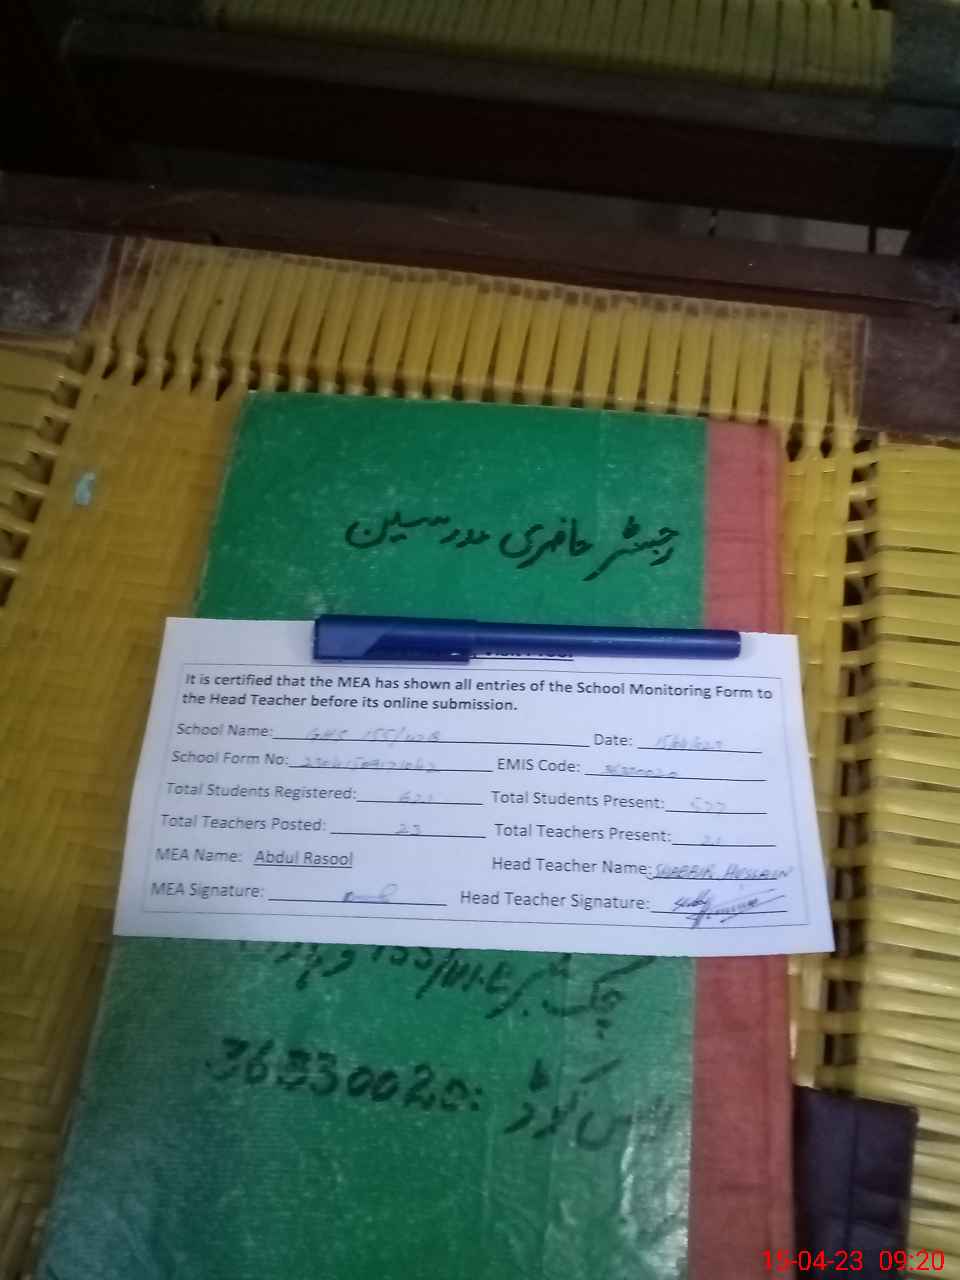 رجسٹر حاضری مدرسین
It is certified that the MEA has shown all entries of the School Monitoring Form to
the Head Teacher before its online submission.
School Name: GHS 155/WB Date:
School Form No: EMIS Code:
Total Students Registered: Total Students Present: 577
Total Teachers Posted: 23 Total Teachers Present: 21
MEA Name: Abdul Rasool Head Teacher Name: SHABBIR HUSSAIN
MEA Signature: Head Teacher Signature:
چک نمبر
36330020:
کوڈ
15-04-23 09:20